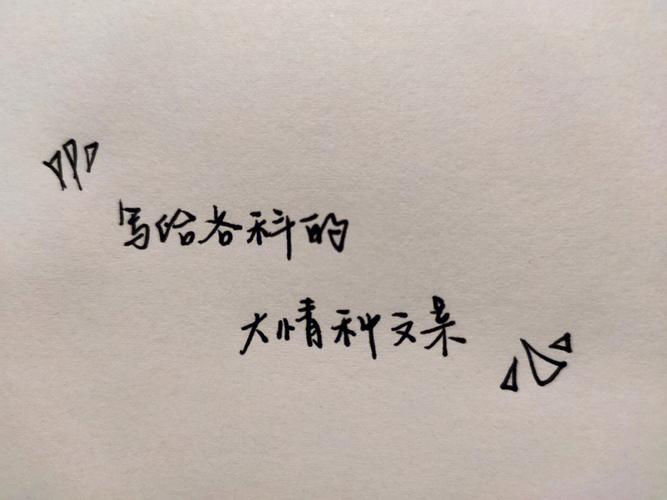 写给各科的
大情种文案